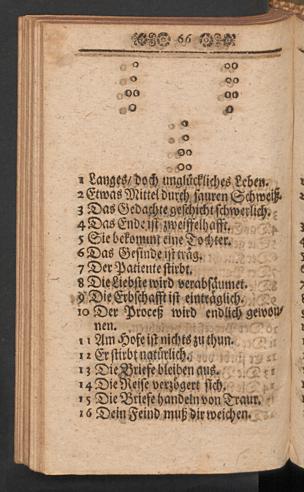 66
1 Langes/ doch unglückliches Leben.
2 Etwas Mittel durch sauren Schweiß.
3 Das Gedachte geschicht schwerlich.
4 Das Ende ist zweiffelhafft.
5 Sie bekommt eine Tochter.
6 Das Gesinde ist träg.
7 Der Patiente stirbt.
8 Die Liebste wird verabsäumet.
9 Die Erbschafft ist einträglich.
10 Der Proceß wird endlich gewon-
nen.
11 Am Hofe ist nichts zu thun.
12 Er stirbt natürlich.
13 Die Briefe bleiben aus.
14 Die Reise verzögert sich.
15 Die Briefe handeln von Traur.
16 Dein Feind muß dir weichen.